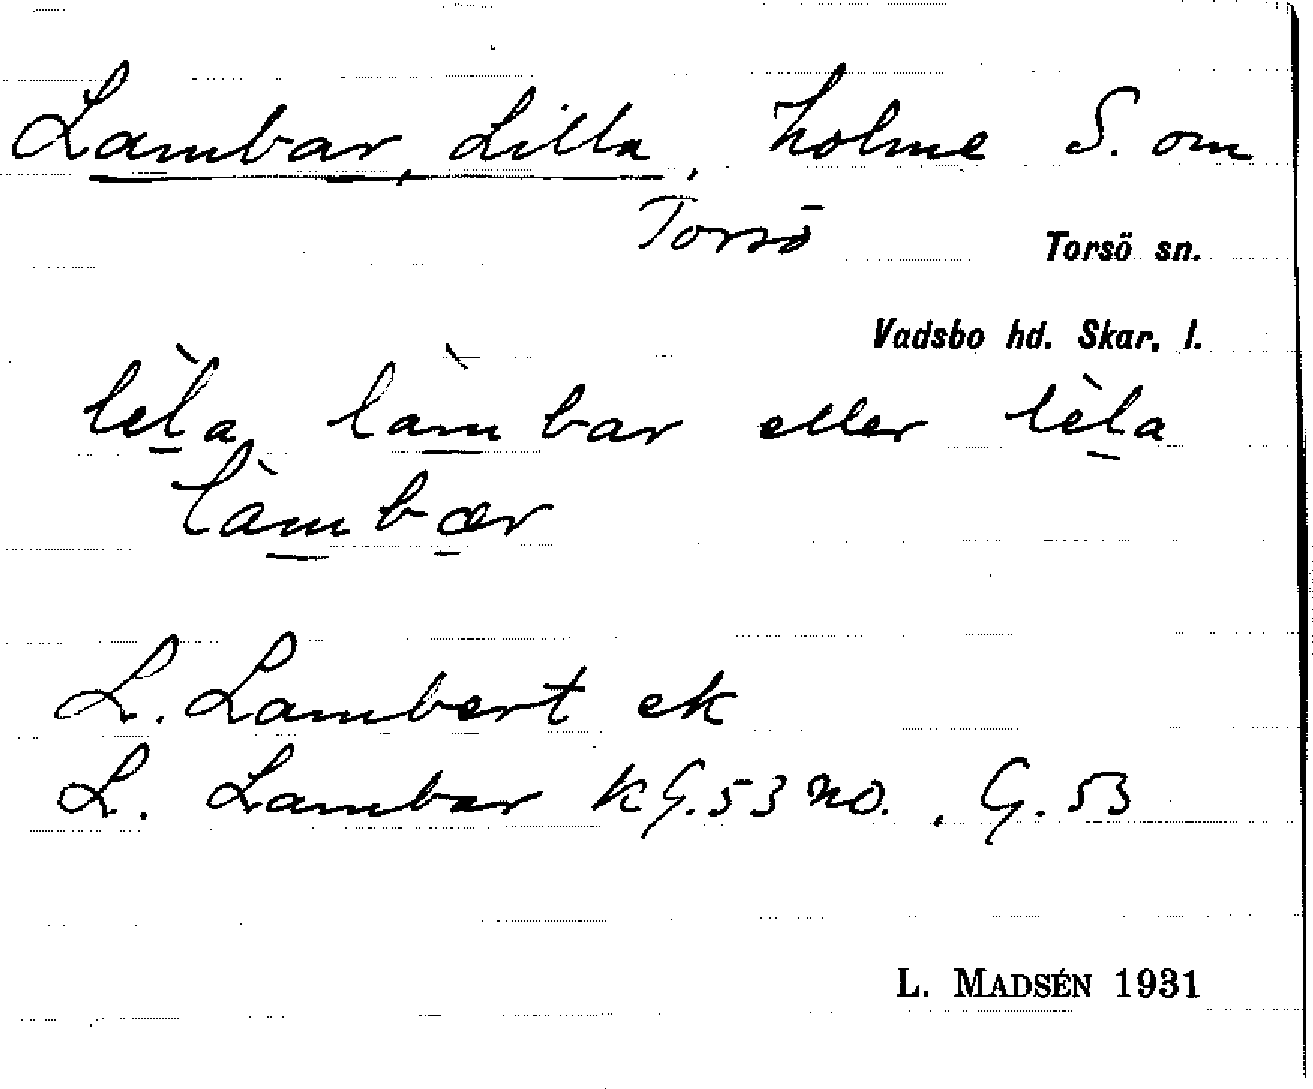 Lambar, Lilla, holme S. om
Torsö
Torsö sn.
Vadsbo hd. Skar. l.
lèla làmbar eller lèla
làmbær
L. Lambert ek
L. Lambar kG.53 no., G.53
L. MADSÉN 1931